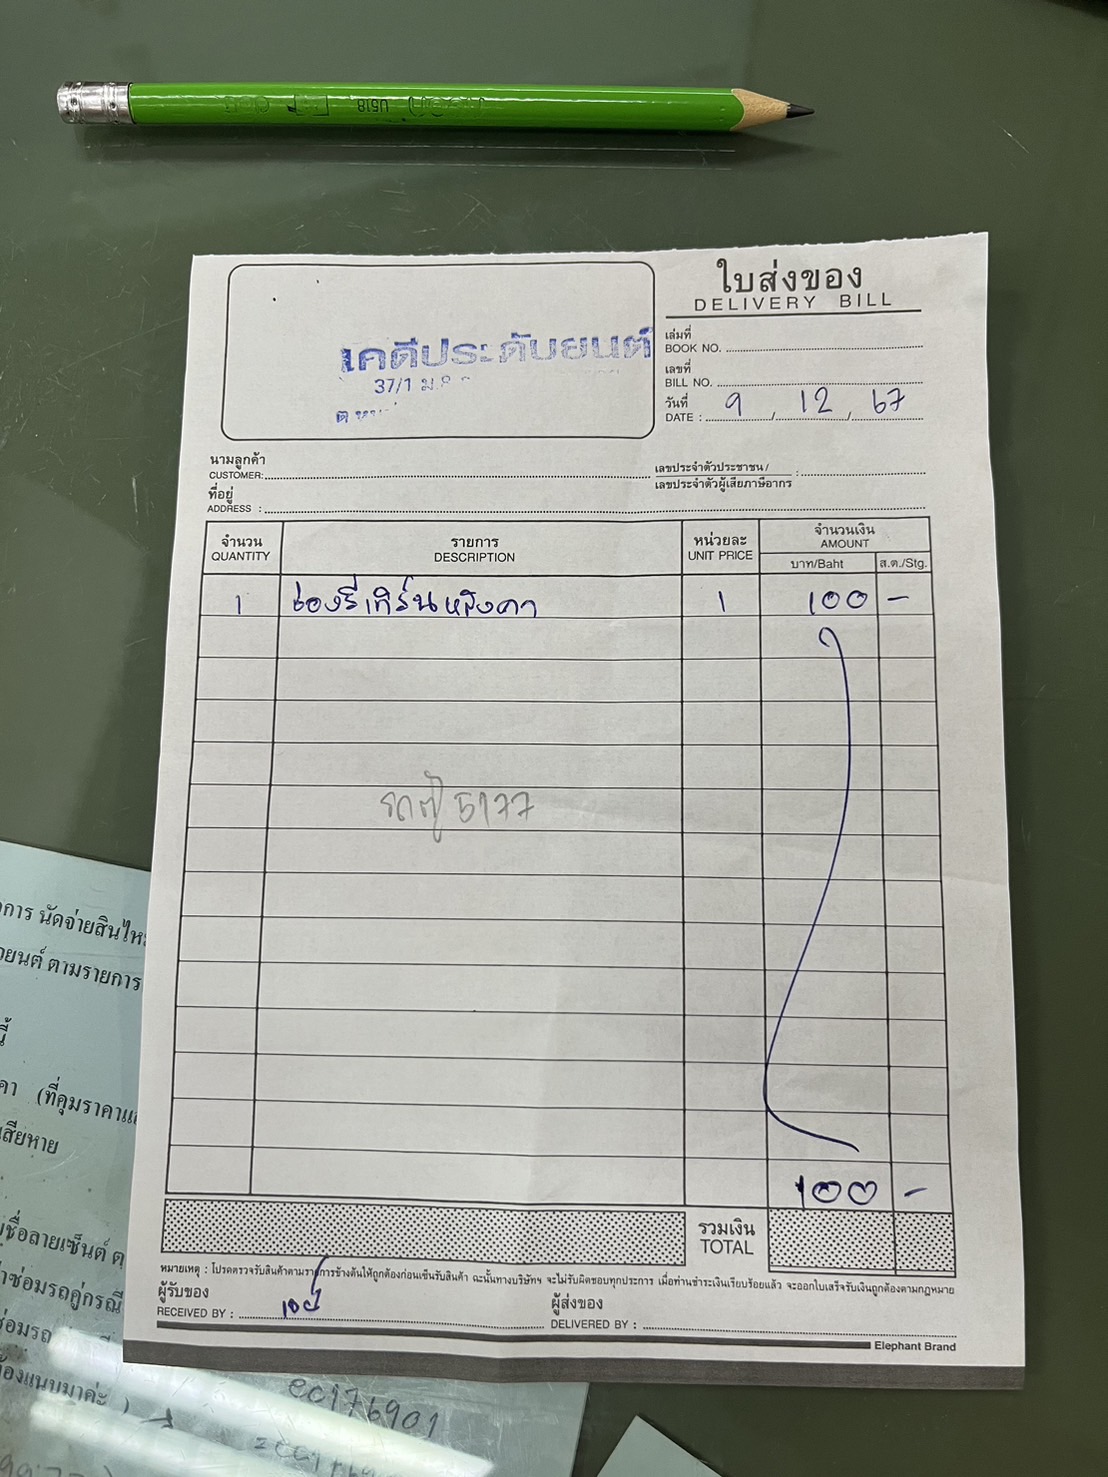 U518
ใบส่งของ
DELIVERY BILL
เคดีประดับยนต์
37/1 ม.8
ต
เล่มที่
BOOK NO.
เลขที่
BILL NO.
วันที่
DATE : 9 / 12 / 67
นามลูกค้า
CUSTOMER:
เลขประจำตัวประชาชน / :
เลขประจำตัวผู้เสียภาษีอากร
ที่อยู่
ADDRESS :
จำนวน รายการ หน่วยละ จำนวนเงิน
QUANTITY DESCRIPTION UNIT PRICE AMOUNT
บาท/Baht ส.ต./Stg.
1 ช่องรีเทิร์นหลังคา 1 100 -
รถตู้ 5177
100 -
รวมเงิน
TOTAL
หมายเหตุ : โปรดตรวจรับสินค้าตามรายการข้างต้นให้ถูกต้องก่อนเซ็นรับสินค้า ฉะนั้นทางบริษัทฯ จะไม่รับผิดชอบทุกประการ เมื่อท่านชำระเงินเรียบร้อยแล้ว จะออกใบเสร็จรับเงินถูกต้องตามกฎหมาย
ผู้รับของ ผู้ส่งของ
RECEIVED BY : DELIVERED BY :
Elephant Brand
การ นัดจ่ายสินไหม
ยนต์ ตามรายการ
นี้
คา (ที่คุมราคาแ
เสียหาย
ชื่อลายเซ็นต์
ซ่อมรถคู่กรณี
ซ่อมรถ
ต้องแนบมาค่ะ )
ec176901